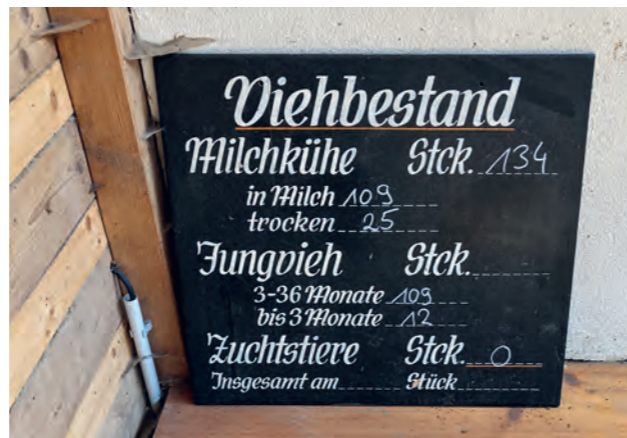 Viehbestand
Milchkühe Stck. 134
in Milch 109
trocken 25
Jungvieh Stck.
3-36 Monate 109
bis 3 Monate 12
Zuchtstiere Stck. 0
Insgesamt am Stück